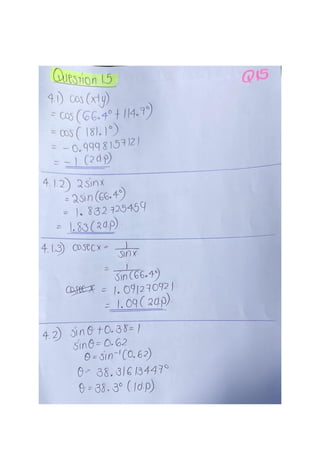 Question 15
Q15
4.1) cos(x+y)
= cos(66.4° + 114.7°)
= cos(181.1°)
= -0.9998157121
= -1 (2dp)
4.1.2) 2sinx
= 2sin(66.4°)
= 1.832725454
= 1.83(2dp)
4.1.3) cosecx = 1/sinx
= 1/sin(66.4°)
= 1.091270921
= 1.09(2dp)
4.2) sinθ + 0.38 = 1
sinθ = 0.62
θ = sin⁻¹(0.62)
θ = 38.31613447°
θ = 38.3° (1dp)